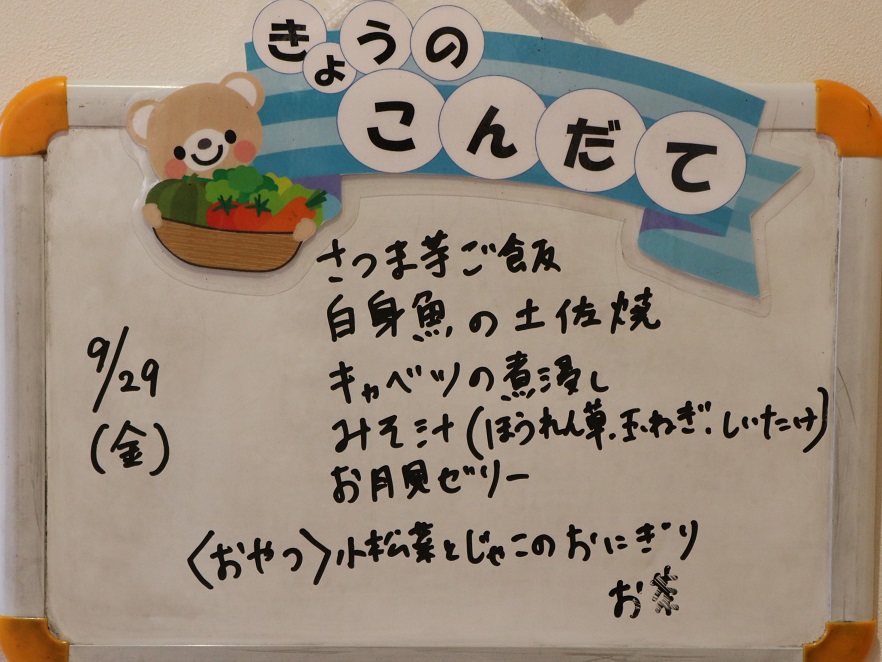 きょうの
こんだて
9/29
(金)
さつま芋ご飯
白身魚の土佐焼
キャベツの煮浸し
みそ汁(ほうれん草、玉ねぎ、しいたけ)
お月見ゼリー
〈おやつ〉小松菜とじゃこのおにぎり
お